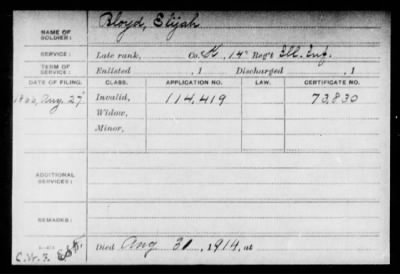 NAME OF SOLDIER: Bloyd, Elijah
SERVICE: Late rank, Co. K, 14" Reg't Ill. Inf.
TERM OF SERVICE: Enlisted , 1 Discharged , 1
DATE OF FILING. CLASS. APPLICATION NO. LAW. CERTIFICATE NO.
Aug. 27 Invalid, 114,419 73,830
Widow,
Minor,
ADDITIONAL SERVICES:
REMARKS:
Died Aug 31, 1914, at